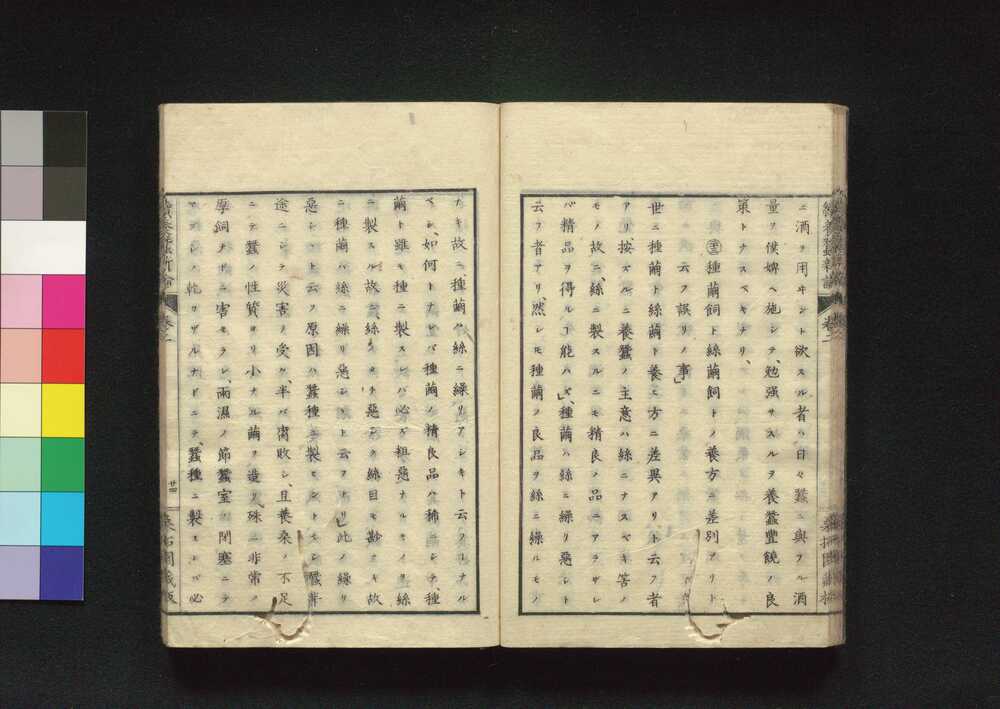 ニ酒ヲ用ヰント欲スル者ハ日々蚕ニ與フル酒
量ヲ僕婢ヘ施シテ、勉強サスルヲ養蠶豐饒ノ良
策トナスベキナリ、
種繭飼ト絲繭飼トノ養方ニ差別アリト
云フ誤リノ事
世ニ種繭ト絲繭ト養ヒ方ニ差異アリト云フ者
アリ、按ズルニ養蠶ノ主意ハ絲ニナスベキ筈ノ
モノ故ニ、絲ニ製スルニモ精良ノ品ニアラザレ
バ精品ヲ得ルコ能ハズ、種繭ハ絲ニ繰リ惡シト
云フ者アリ、然レモ種繭ノ良品ヲ絲ニ繰ルモノ
ナキ故ニ、種繭ハ絲ニ繰リアシキト云フコナル
ベシ、如何トナレバ種繭ノ精良品ハ稀ニシテ、種
繭ト雖モ種ニ製スレバ必ズ粗惡ナルモノヲ絲
ニ製スル故ニ絲ノタチ惡シク絲目モ尠ナキ故
ニ種繭ハ絲ニ繰リ惡シヽト云フナリ、此ノ繰リ
惡シヽト云フ原因ハ蠶種ニ製セントスレ𪜈蠶事
途ニシテ災害ノ受ケ、半バ腐敗シ、且養桑ノ不足
ニテ蠶ノ性質ヨリ小ナル繭ヲ造リ、殊ニ非常ノ
厚飼ナドニ害セラレ、雨濕ノ節蠶室ノ閉塞ニテ
ノ乾リザルナドニテ、蠶種ニ製スレバ必
卷二
廿四